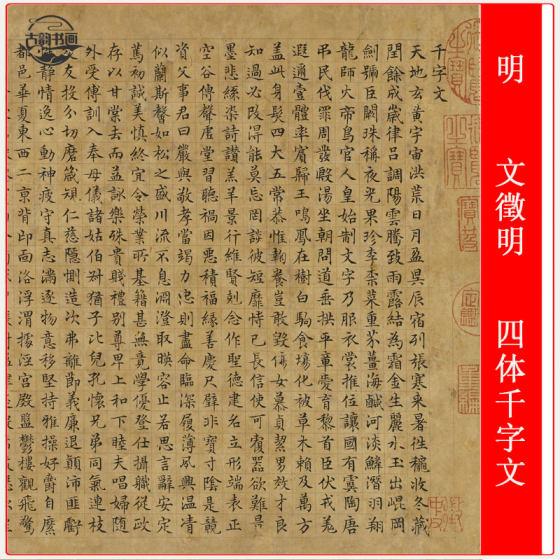 千字文
天地玄黃宇宙洪荒日月盈昃辰宿列張寒来暑徃穐收冬藏
閏餘成歲律呂調陽雲騰致雨露結為霜金生麗水玉出崐岡
劍號巨闕珠稱夜光果珎李柰菜重芥薑海鹹河淡鱗潛羽翔
龍師火帝鳥官人皇始制文字乃服衣裳推位讓國有虞陶唐
弔民伐罪周發殷湯坐朝問道垂拱平章愛育黎首臣伏戎羌
遐邇壹體率賓歸王鳴鳳在樹白駒食場化被草木賴及萬方
蓋此身髮四大五常恭惟鞠養豈敢毀傷女慕貞絜男效才良
知過必改得能莫忘罔談彼短靡恃己長信使可覆器欲難量
墨悲絲染詩讚羔羊景行維賢剋念作聖德建名立形端表正
空谷傳聲虛堂習聽禍因惡積福緣善慶尺璧非寶寸陰是競
資父事君曰嚴與敬孝當竭力忠則盡命臨深履薄夙興溫凊
似蘭斯馨如松之盛川流不息淵澄取映容止若思言辭安定
篤初誠美慎終宜令榮業所基籍甚無竟學優登仕攝職從政
存以甘棠去而益詠樂殊貴賤禮別尊卑上和下睦夫唱婦隨
外受傅訓入奉母儀諸姑伯叔猶子比兒孔懷兄弟同氣連枝
交友投分切磨箴規仁慈隱惻造次弗離節義廉退顛沛匪虧
性靜情逸心動神疲守真志滿逐物意移堅持雅操好爵自縻
都邑華夏東西二京背邙面洛浮渭據涇宮殿盤鬱樓觀飛驚
古韵书画
明
文徵明
四体千字文